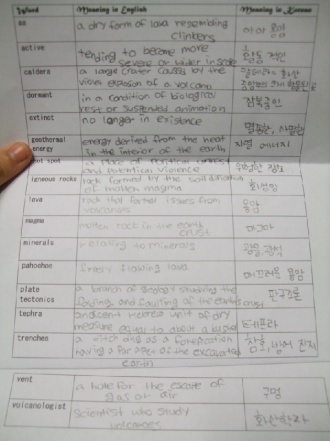 Word Meaning in English Meaning in Korean
aa a dry form of lava resembling
clinkers 아아 용암
active tending to become more
severe or wider in scope 활동적인
caldera a large crater caused by the
violent explosion of a volcano
dormant in a condition of biological
rest or suspended animation 잠복중인
extinct no longer in existence 멸종된, 사멸한
geothermal energy energy derived from the heat
in the interior of the earth 지열 에너지
hot spot a place of political unrest
and potential violence 위험한 장소
igneous rocks rock formed by the solidification
of molten magma 화성암
lava rock that formed issues from
volcanoes 용암
magma molten rock in the earth
crust 마그마
minerals relating to minerals 광물
pahoehoe freely flowing lava 용암
plate tectonics a branch of geology studying the
folding and faulting of the earths crust 판구조론
tephra ancient Hebrew unit of dry
measure equal to about a bushel 테프라
trenches a ditch dug as a fortification
having a parapet of the excavated
earth 참호
vent a hole for the escape
of gas or air 구멍
vulcanologist Scientist who study
volcanoes 화산학자